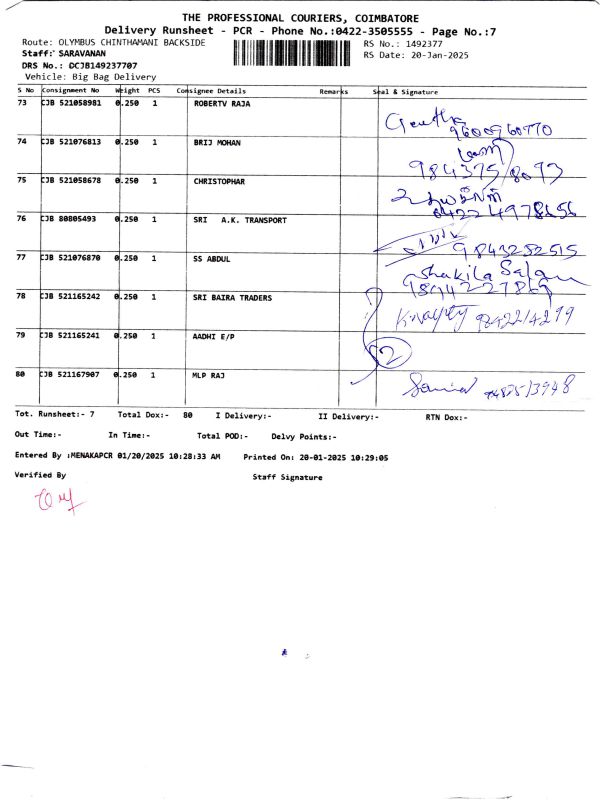 THE PROFESSIONAL COURIERS, COIMBATORE
Delivery Runsheet - PCR - Phone No.:0422-3505555 - Page No.:7
Route: OLYMBUS CHINTHAMANI BACKSIDE
RS No.: 1492377
Staff: SARAVANAN
RS Date: 20-Jan-2025
DRS No.: DCJB149237707
Vehicle: Big Bag Delivery
S No Consignment No Weight PCS Consignee Details Remarks Seal & Signature
73 CJB 521058981 0.250 1 ROBERTV RAJA
9600960770
74 CJB 521076813 0.250 1 BRIJ MOHAN
984375/8093
75 CJB 521058678 0.250 1 CHRISTOPHAR
0422 4978656
76 CJB 80805493 0.250 1 SRI A.K. TRANSPORT
9843252515
77 CJB 521076870 0.250 1 SS ABDUL
Shakila
78 CJB 521165242 0.250 1 SRI BAIRA TRADERS
9842214299
79 CJB 521165241 0.250 1 AADHI E/P
2
80 CJB 521167907 0.250 1 MLP RAJ
Tot. Runsheet:- 7 Total Dox:- 80 I Delivery:- II Delivery:- RTN Dox:-
Out Time:- In Time:- Total POD:- Delvy Points:-
Entered By :MENAKAPCR 01/20/2025 10:28:33 AM Printed On: 20-01-2025 10:29:05
Verified By Staff Signature